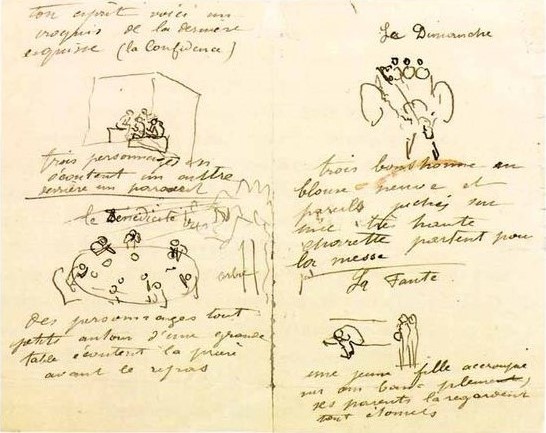 ton esprit voici un
croquis de la dernière
esquisse (la Confidence)
trois personnages en
écoutent un auttre
derrière un paravent
le Bénédicité
arbre
Des personnages tout
petits autour d'une grande
table écoutent la prière
avant le repas
Le Dimanche
trois bonshomme en
blouse neuve et
pareils juchés sur
une très haute
charette partent pour
la messe
La Faute
une jeune fille accroupie
sur un banc pleurent,
ses parents la regardent
tout étonnés